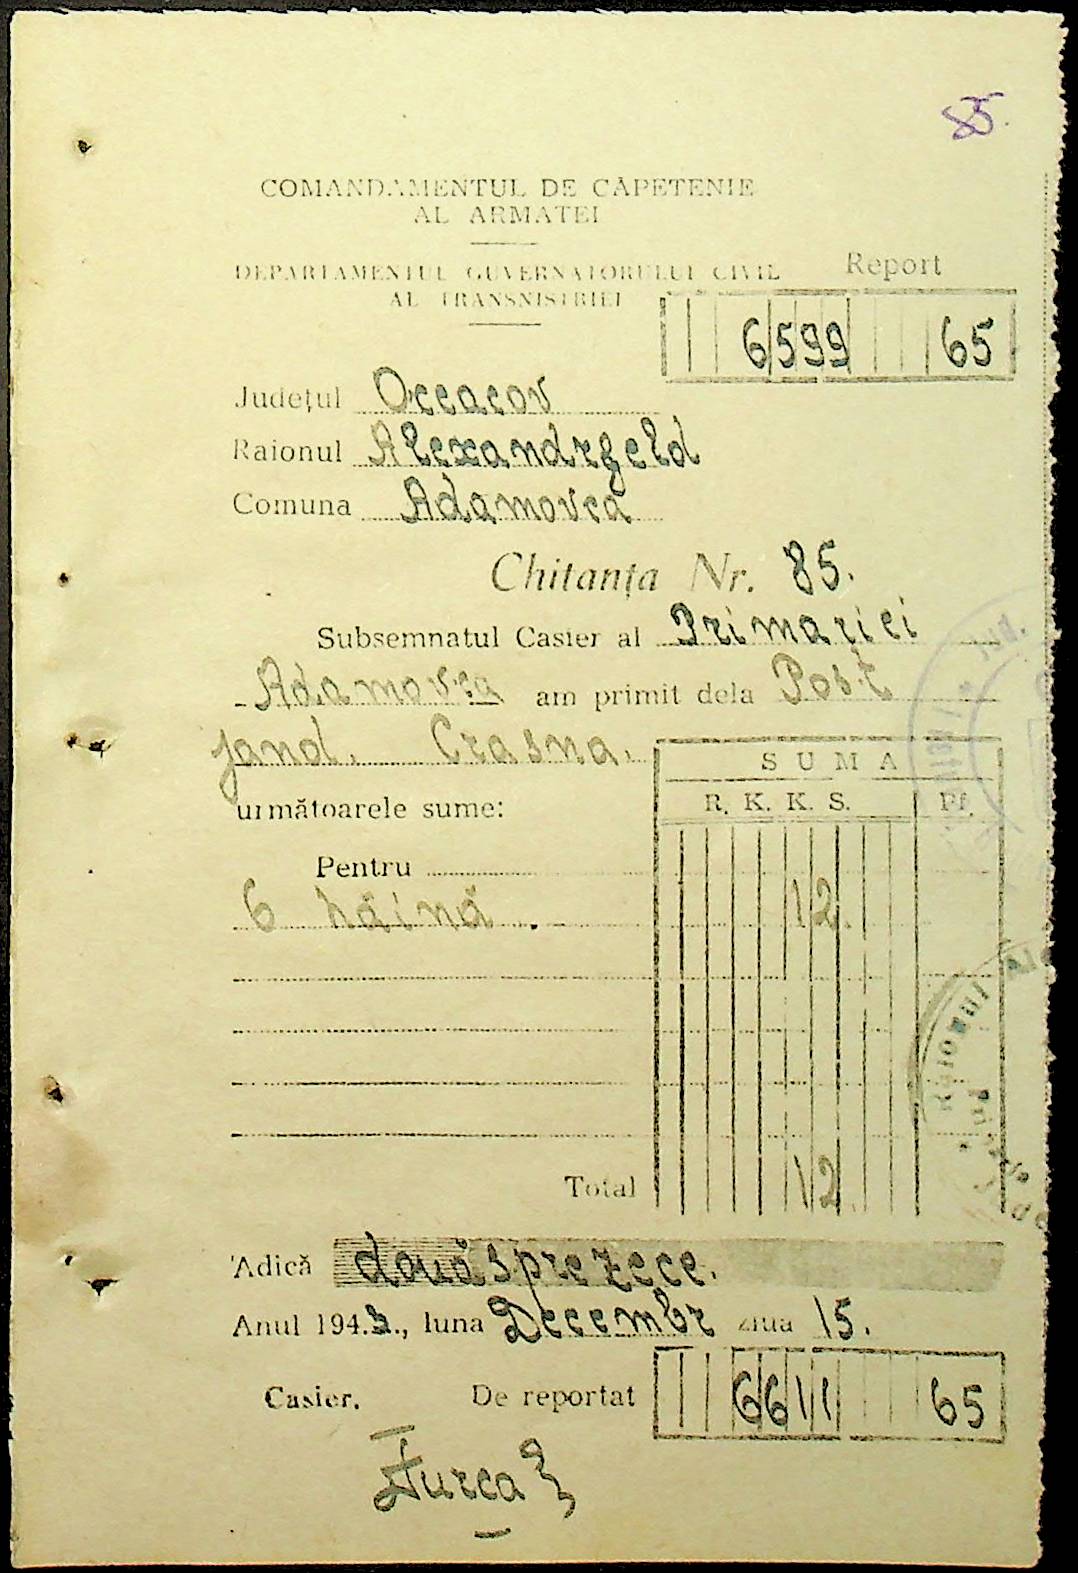 85.
COMANDAMENTUL DE CĂPETENIE
AL ARMATEI
DEPARTAMENTUL GUVERNATORULUI CIVIL
AL TRANSNISTRIEI
Report
6599 65
Județul Oceacov
Raionul Alexandrfeld
Comuna Adamovca
Chitanța Nr. 85.
Subsemnatul Casier al Primariei
Adamovca am primit dela Post
jand. Crasna.
următoarele sume:
SUMA
R. K. K. S. Pf.
Pentru
6 háină. 12.
Total 12.
Adică douăsprezece.
Anul 1943., luna Decembr ziua 15.
Casier. De reportat 6611 65
Țurca
Jud.
Raionul Ale